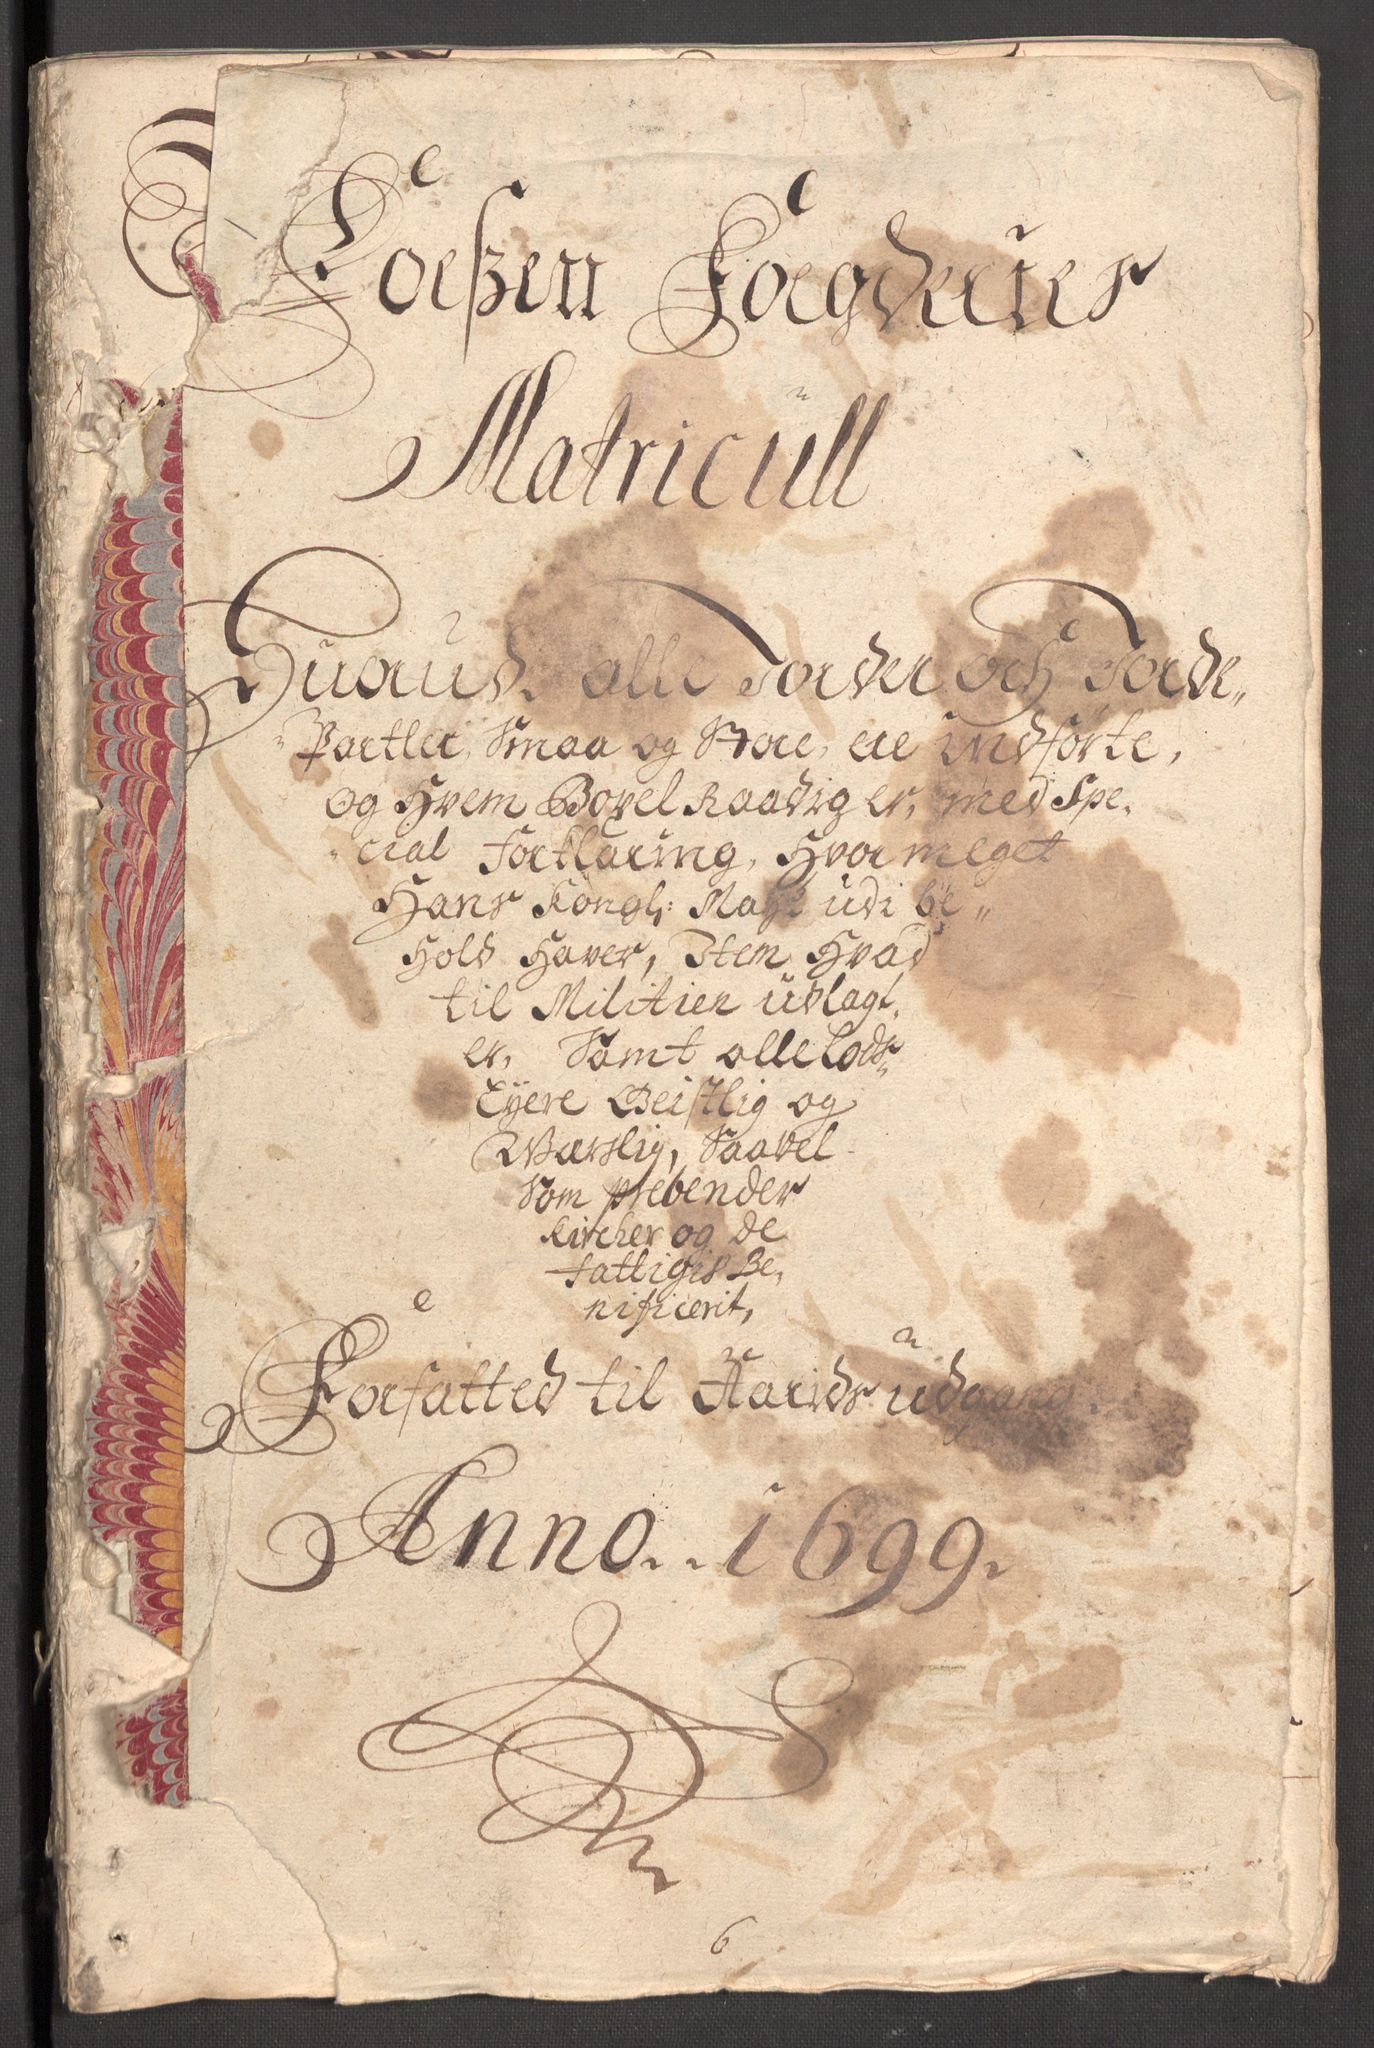 Foeßen Foegderies
Matricull
Huorudj alle Jorder och Jorde„
„Parter, Smaa og Store, ere indførte,
og Hvem Boxel Raadig er, med Spe„
„cial Forklaring, Hvor meget
Hans Kongl: Mayt udi be„
Hold Haver, Item Hvad
til Militien udlagt
er, Samt alle Lods„
Eÿere Geistlig og
Werslig, Saavel
Som prebender
Kircher og de
fattigis Be„
nificerit,
Forfatted til Aarids udgang
Anno. 1699.
6